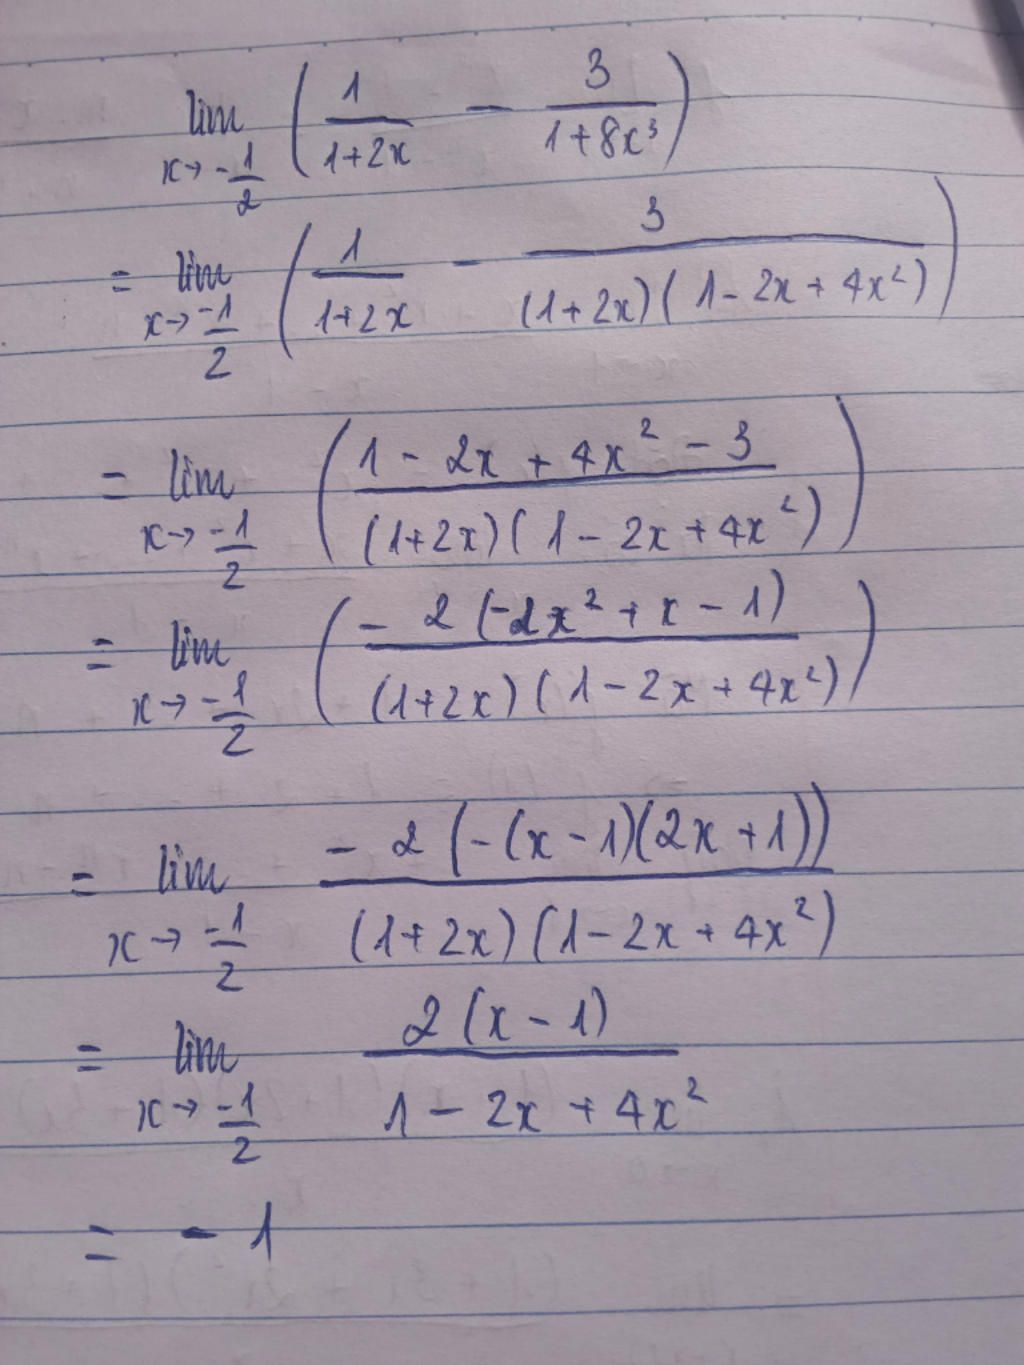 lim x→-1/2 (1/(1+2x) - 3/(1+8x³))
= lim x→-1/2 (1/(1+2x) - 3/((1+2x)(1-2x+4x²)))
= lim x→-1/2 ((1-2x+4x²-3)/((1+2x)(1-2x+4x²)))
= lim x→-1/2 (-2(-2x²+x-1)/((1+2x)(1-2x+4x²)))
= lim x→-1/2 -2(-(x-1)(2x+1))/((1+2x)(1-2x+4x²))
= lim x→-1/2 2(x-1)/(1-2x+4x²)
= -1